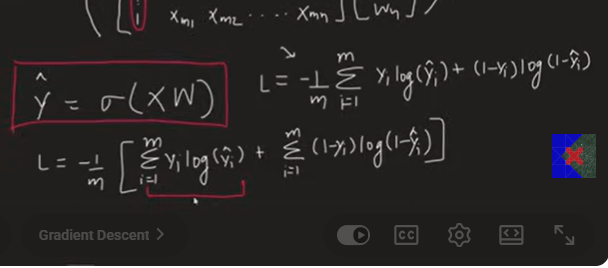 1 x_{m1} x_{m2} .... x_{mn} ] [ w_n ] )
L = -1/m \sum_{i=1}^{m} y_i log(ŷ_i) + (1-y_i) log(1-ŷ_i)
Ŷ = σ(XW)
L = -1/m [ \sum_{i=1}^{m} y_i log(ŷ_i) + \sum_{i=1}^{m} (1-y_i) log(1-ŷ_i) ]
Gradient Descent >
CC